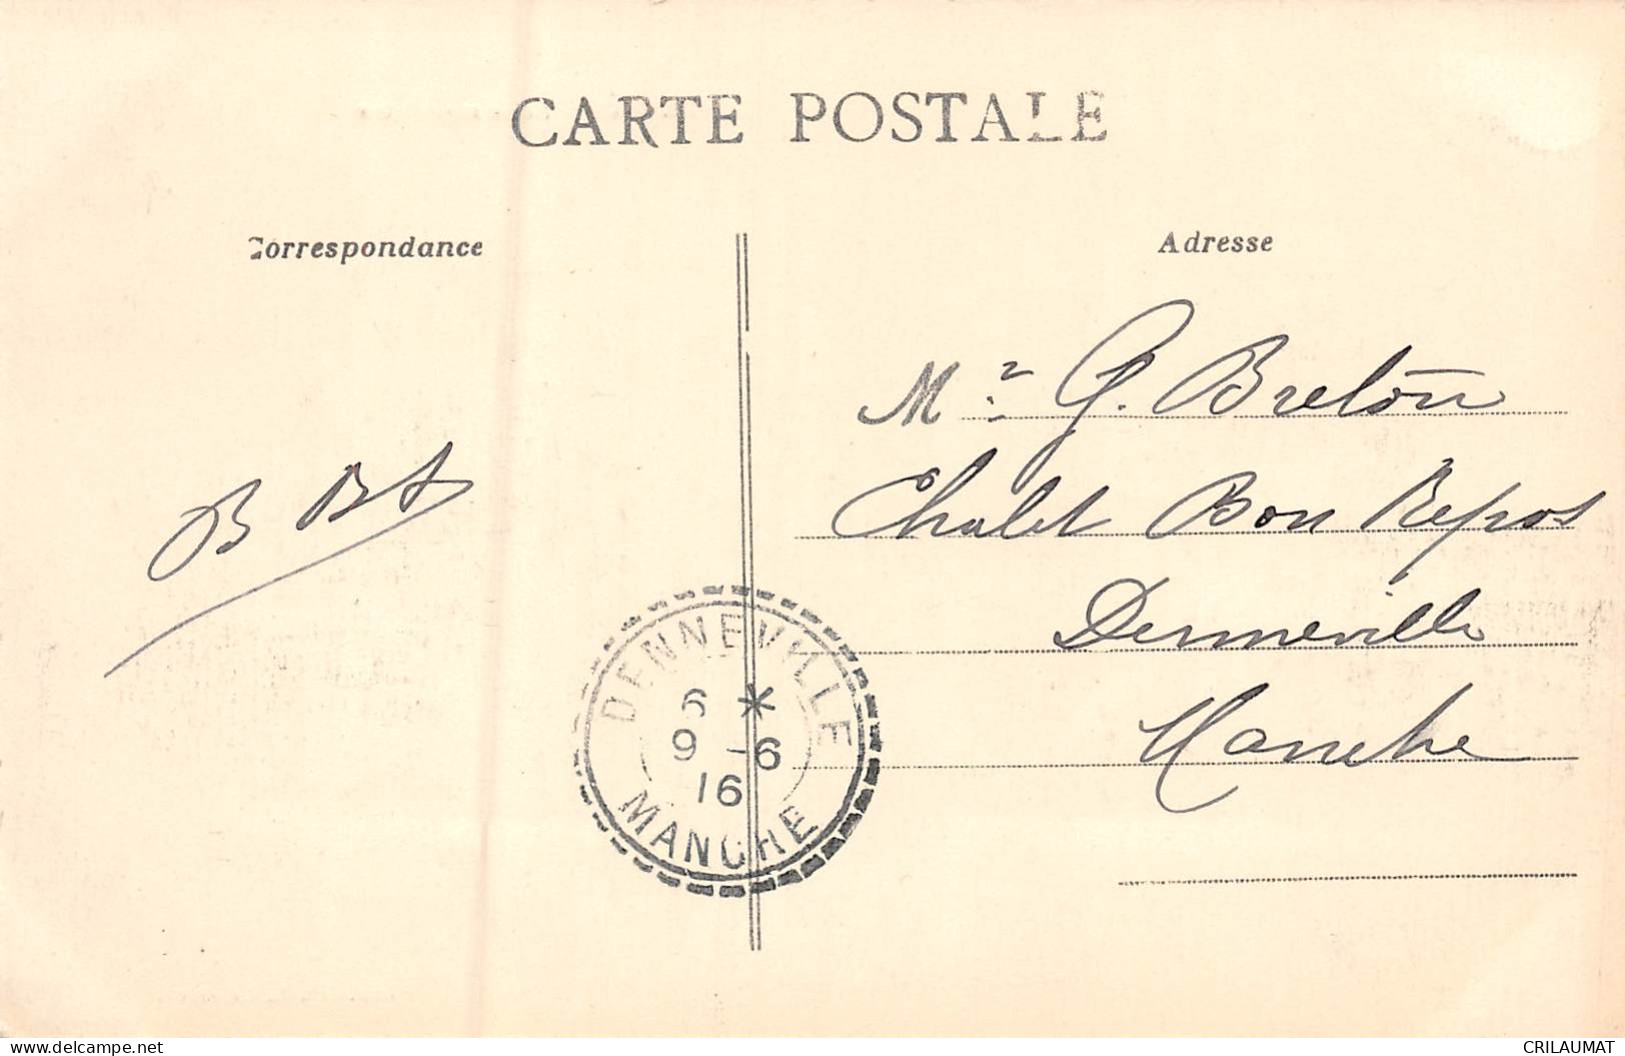 CARTE POSTALE
Correspondance
Adresse
Mr. G. Breton
Chalet Bon Repos
Denneville
Manche
DENNEVILLE
6 *
9 -6
16
MANCHE
www.delcampe.net
CRILAUMAT